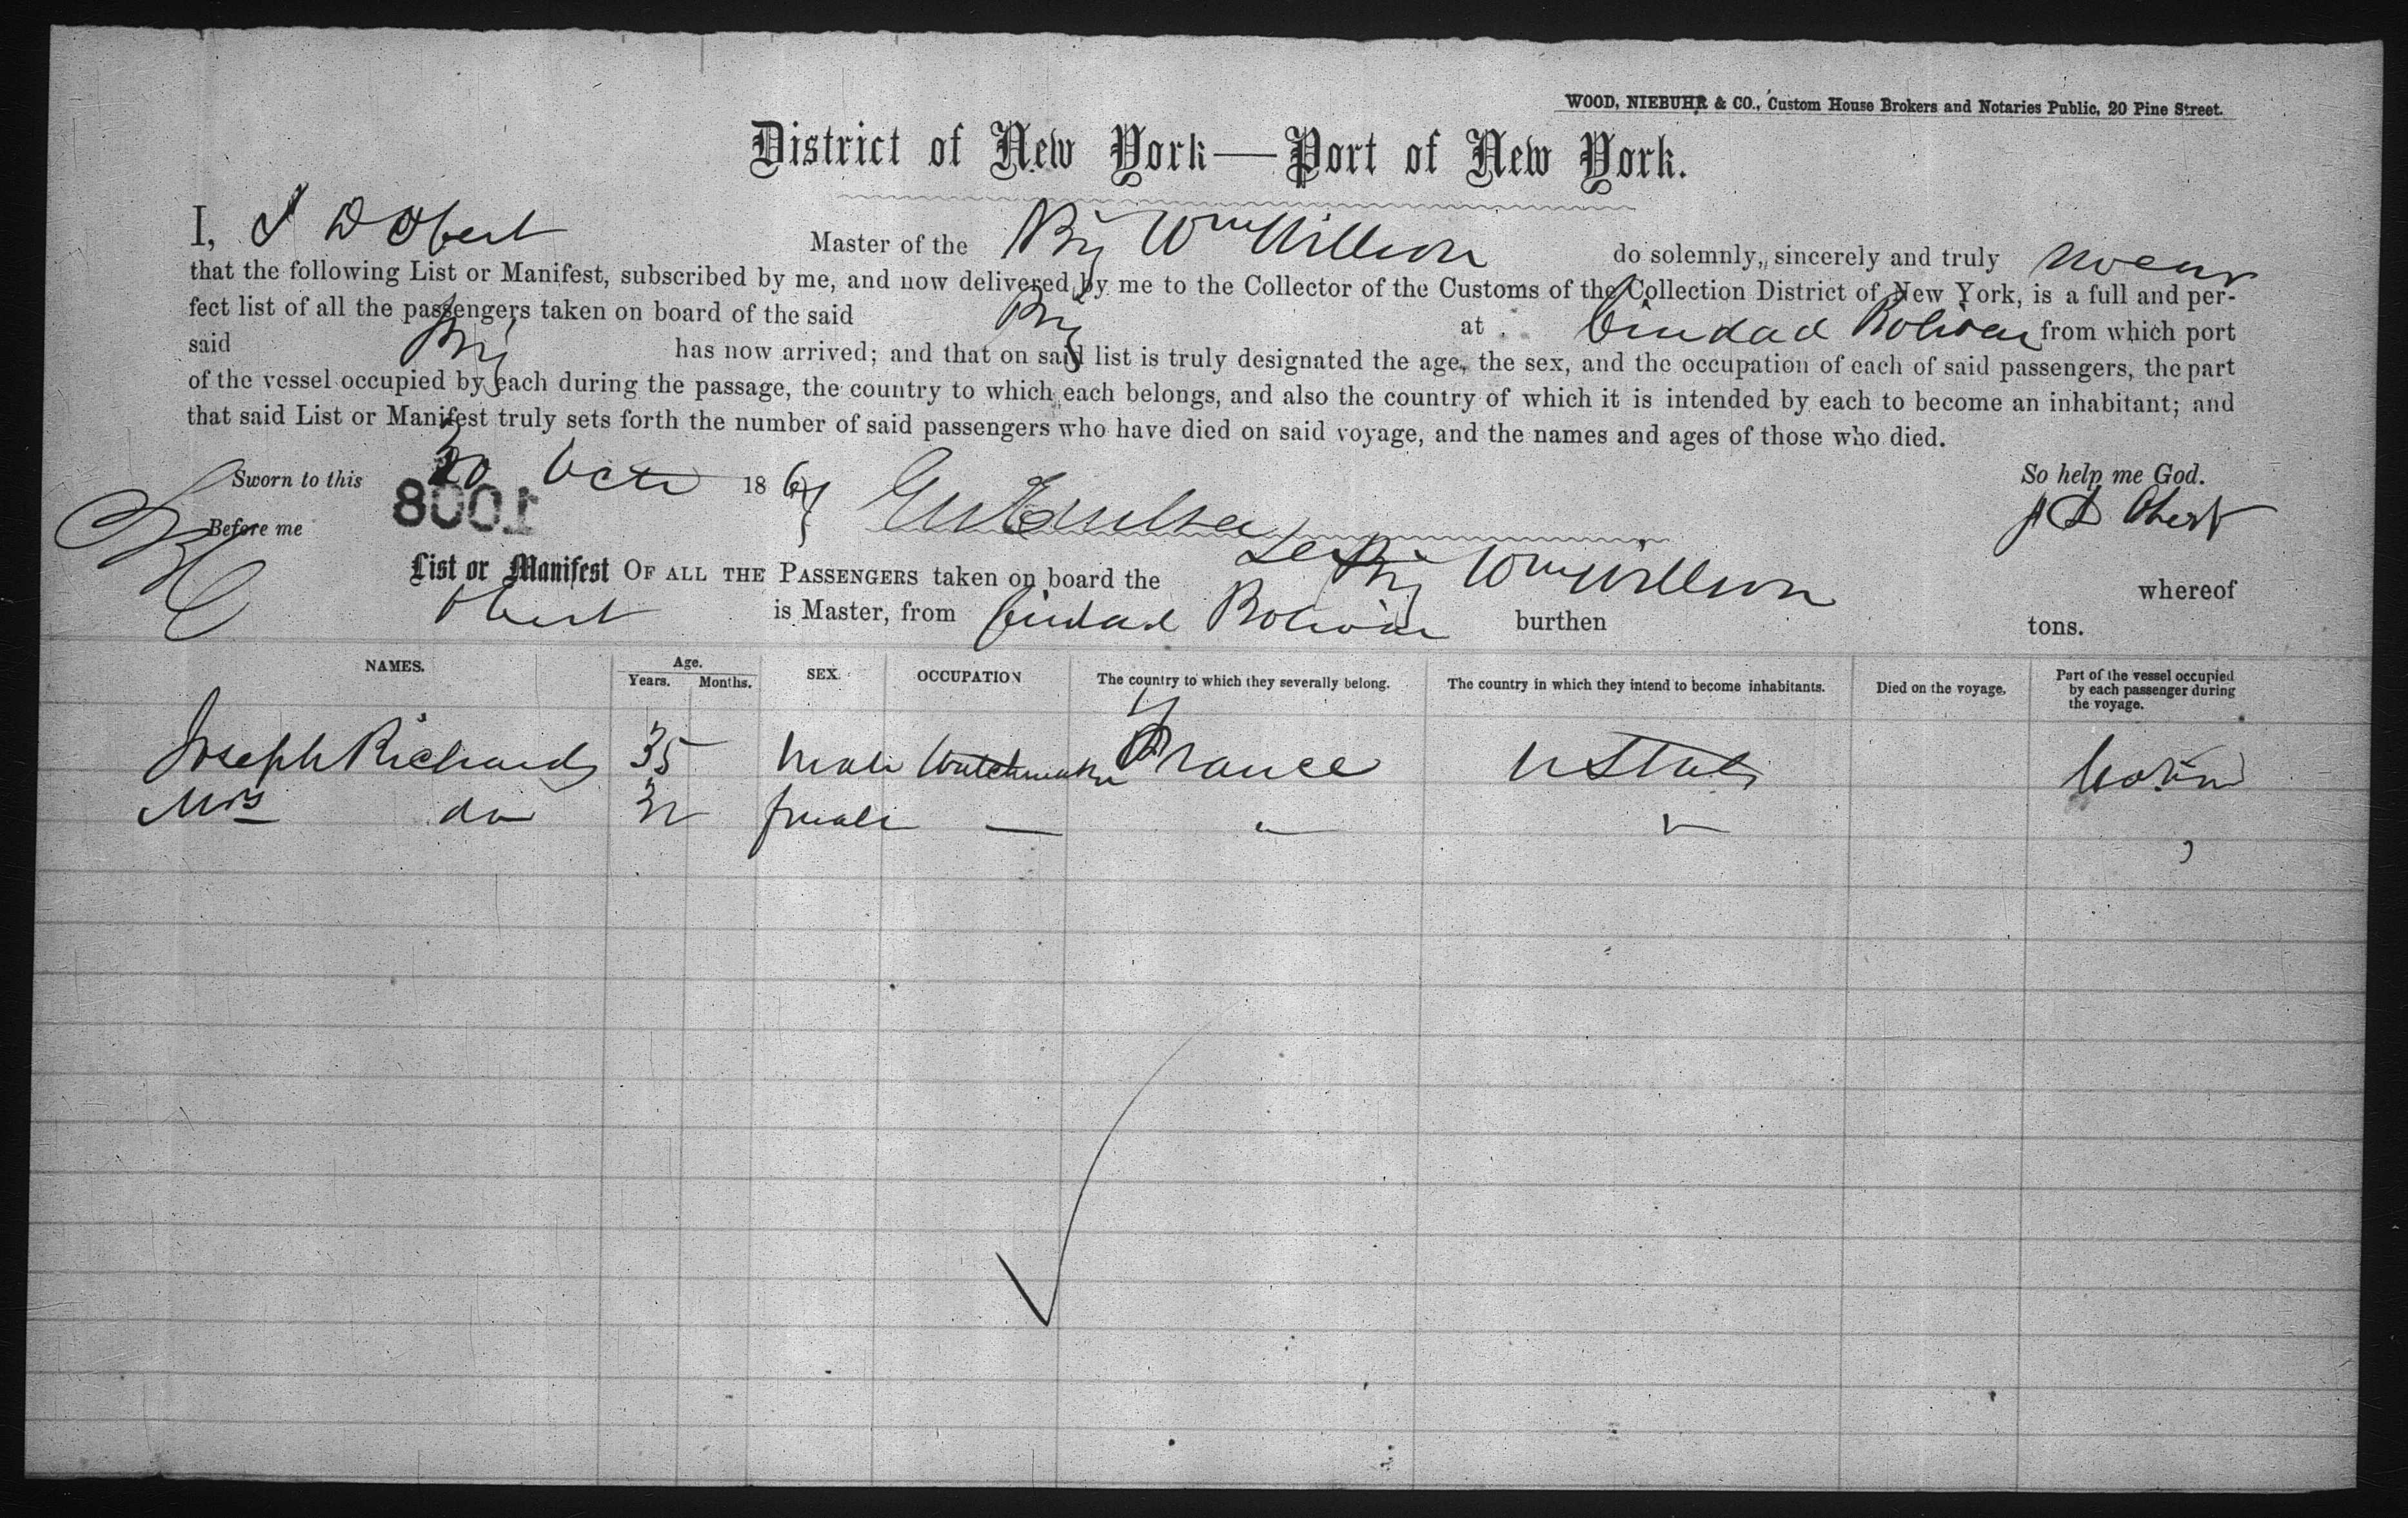 WOOD, NIEBUHR & CO., Custom House Brokers and Notaries Public, 20 Pine Street.
District of New York—Port of New York.
I, J D Obert Master of the Brig Wm Willson do solemnly, sincerely and truly swear
that the following List or Manifest, subscribed by me, and now delivered by me to the Collector of the Customs of the Collection District of New York, is a full and per-
fect list of all the passengers taken on board of the said Brig at Ciudad Bolivar from which port
said Brig has now arrived; and that on said list is truly designated the age, the sex, and the occupation of each of said passengers, the part
of the vessel occupied by each during the passage, the country to which each belongs, and also the country of which it is intended by each to become an inhabitant; and
that said List or Manifest truly sets forth the number of said passengers who have died on said voyage, and the names and ages of those who died.
Sworn to this Oct 1867 So help me God.
1008
Before me J D Obert
List or Manifest OF ALL THE PASSENGERS taken on board the Brig Wm Willson whereof
Obert is Master, from Ciudad Bolivar burthen tons.
NAMES. Age. Years. Months. SEX. OCCUPATION The country to which they severally belong. The country in which they intend to become inhabitants. Died on the voyage. Part of the vessel occupied by each passenger during the voyage.
Joseph Richards 35 Male Watchmaker France U States Cabin
Mrs do 32 female — " "